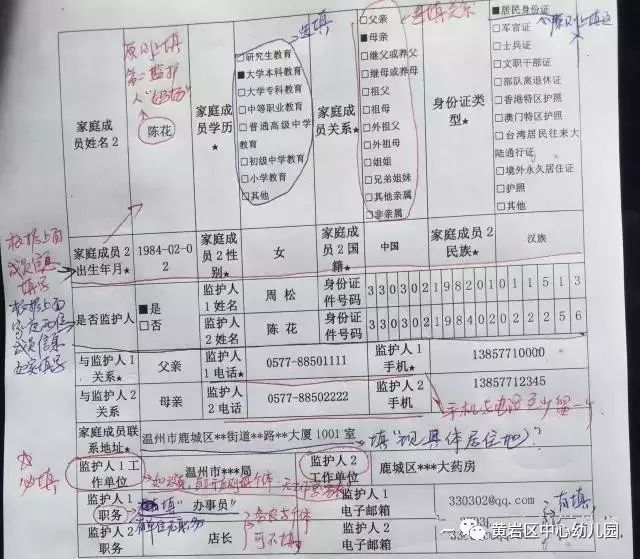 家庭成员姓名2
陈花
家庭成员学历★
□研究生教育
■大学本科教育
□大学专科教育
□中等职业教育
□普通高级中学教育
□初级中学教育
□小学教育
□其他
家庭成员关系★
□父亲
■母亲
□继父或养父
□继母或养母
□祖父
□祖母
□外祖父
□外祖母
□姐姐
□兄弟姐妹
□其他亲属
□非亲属
身份证类型★
■居民身份证
□军官证
□士兵证
□文职干部证
□部队离退休证
□香港特区护照
□澳门特区护照
□台湾居民往来大陆通行证
□境外永久居住证
□护照
□其他
原则上填
第二监护
人"妈妈"
选填
选填关系
家庭成员2出生年月★
1984-02-02
家庭成员2性别★
女
家庭成员2国籍★
中国
家庭成员2民族★
汉族
根据上面
成员信息
填写
是否监护人
■是
□否
监护人1姓名
周松
身份证件号码
330302198201011513
监护人2姓名
陈花
身份证件号码★
330302198402022256
根据上面
成员信息
与监护人1关系★
父亲
监护人1电话★
0577-88501111
监护人1手机★
13857710000
与监护人2关系
母亲
监护人2电话
0577-88502222
监护人2手机
13857712345
手机与电话至少留一个
家庭成员联系地址★
温州市鹿城区**街道**路**大厦1001室
填"现具体居住地"
必填
监护人1工作单位
温州市***局
监护人2工作单位
鹿城区***大药房
监护人1职务
办事员
监护人1电子邮箱
330302@qq.com
监护人2职务
店长
可不填
监护人2电子邮箱
有填
黄岩区中心幼儿园